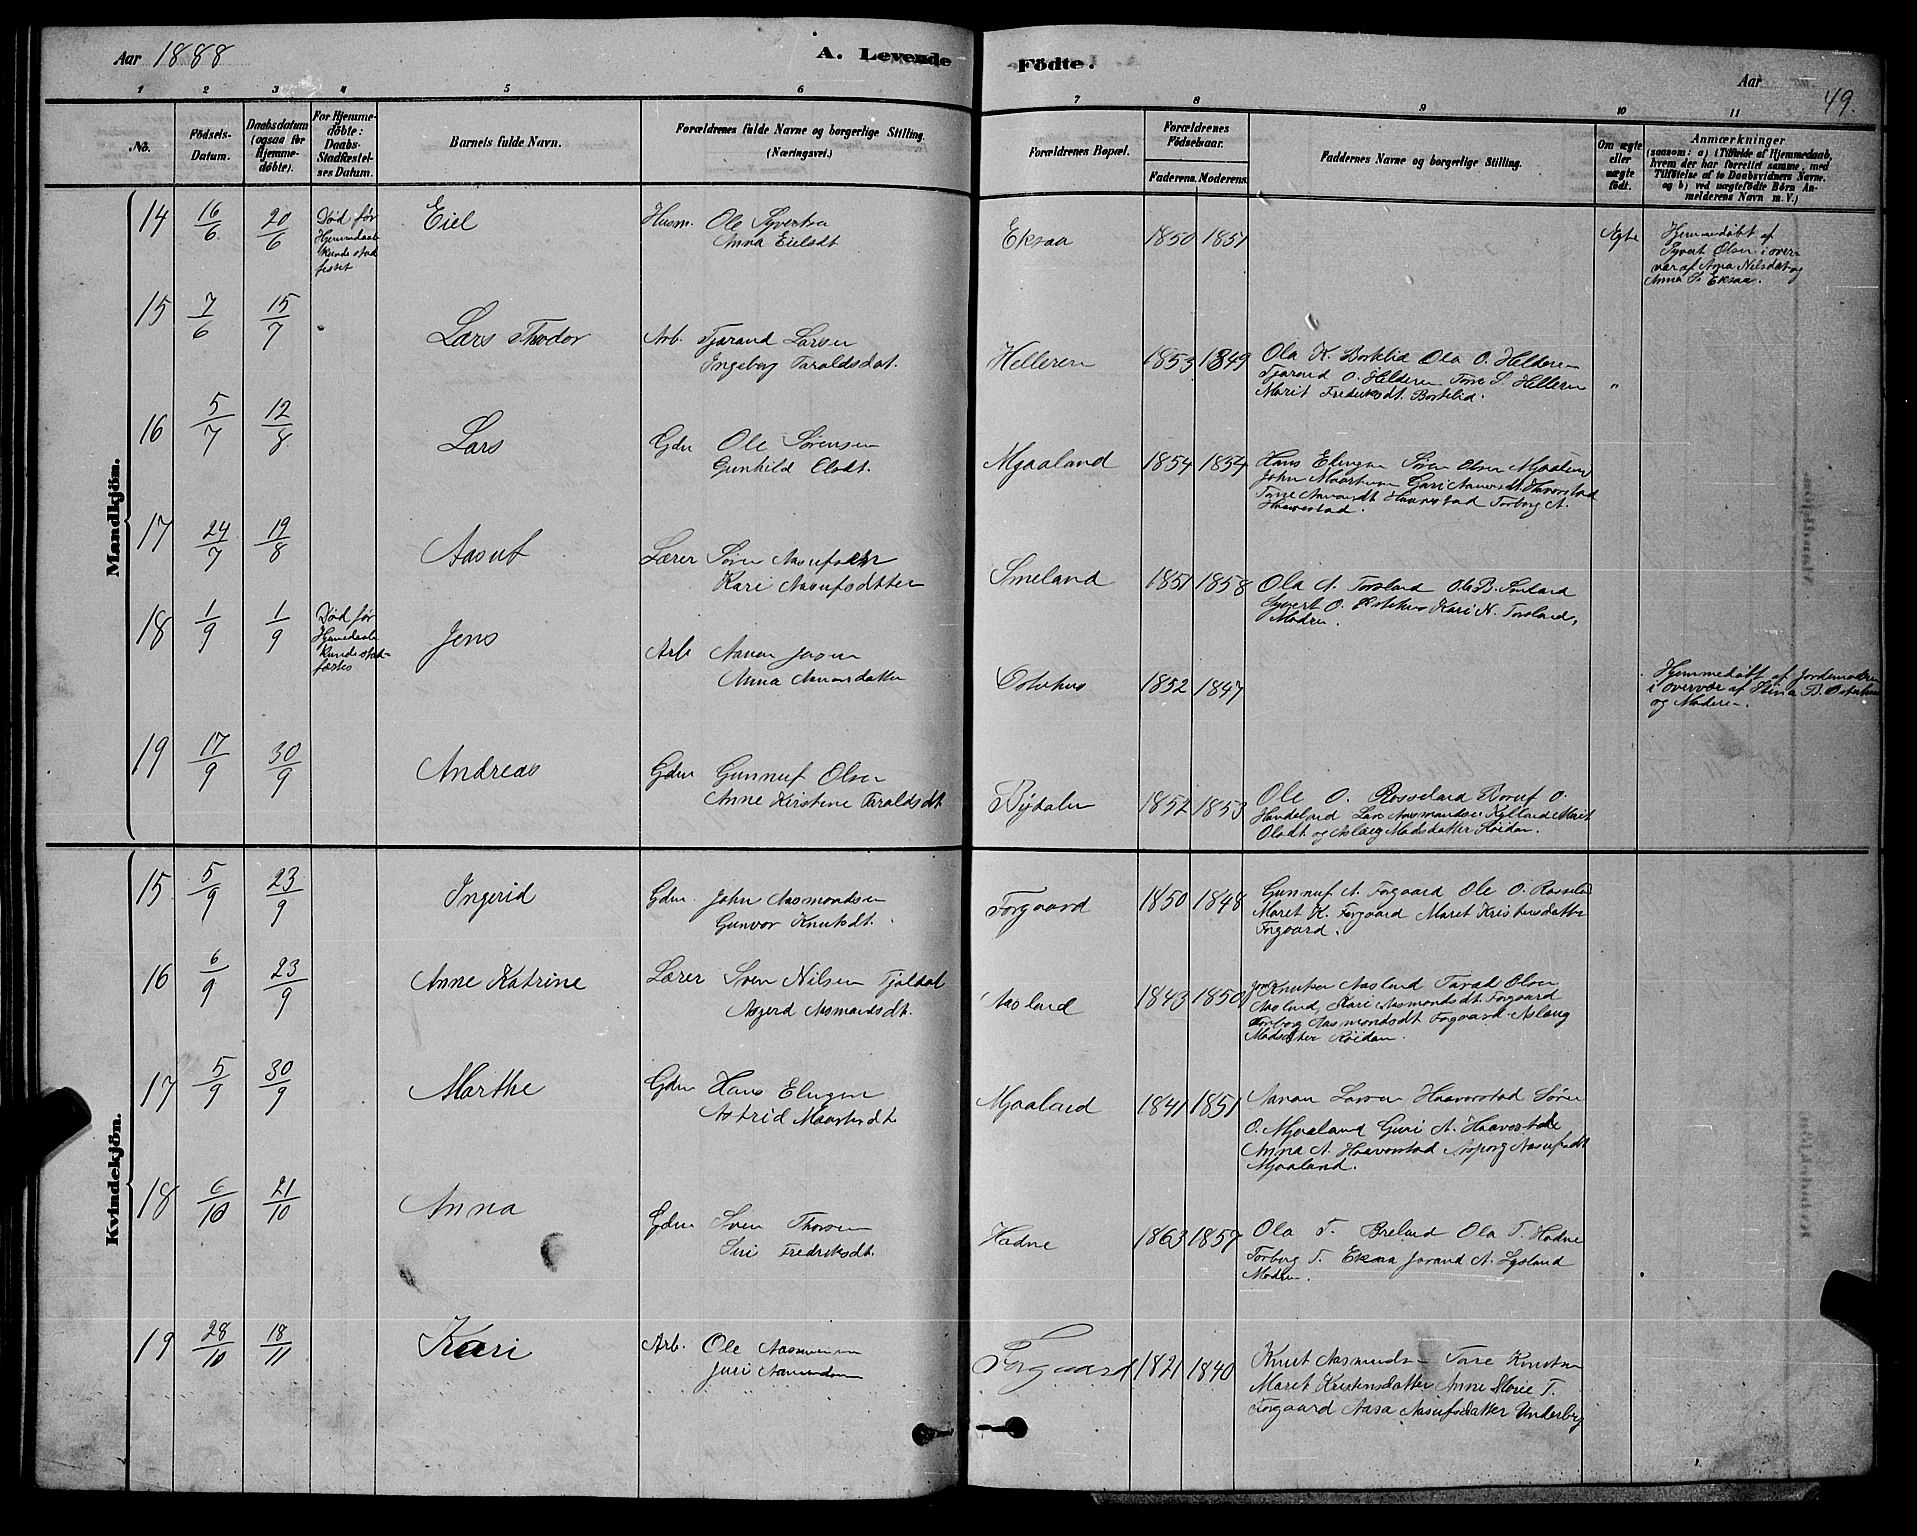 Aar 1888
A. Levende Födte.
Aar
49.
1 2 3 4 5 6 7 8 9 10 11
No.
Födsels-Datum.
Daabsdatum (ogsaa for Hjemme-døbte).
For Hjemme-døbte: Daabs-Stadfæstel-ses Datum.
Barnets fulde Navn.
Forældrenes fulde Navne og borgerlige Stilling.
(Næringsvei.)
Forældrenes Bopæl.
Forældrenes Födselsaar.
Faderens. Moderens.
Faddernes Navne og borgerlige Stilling.
Om ægte eller uægte født.
Anmærkninger
(saasom: a) i Tilfælde af Hjemmedaab,
hvem der har forrettet samme, med
Tilføielse af to Daabsvidners Navne.
og b) ved uægtefödte Börn An-
melderens Navn m. V.)
Mandkjön.
14 16/6 20/6 Død før Hjemmdaab kunde stad festet Eiel Husm. Ole Syvertsen
Anna Eielsdt
Eksaa 1850 1851 Ægte Hjemmedøbt af
Syvert Olsen i over
vær af Anna Nilsdat og
Anna S. Eksaa.
15 7/6 15/7 Lars Thodor Arb. Tjarand Larsen
Ingeborg Taraldsdat.
Helleren 1853 1849 Ola K. Bortelid Ola O. Helderen
Tjarand O. Helderen Tore S. Helleren
Marit Frederiksdt. Bortelid. "
16 5/7 12/8 Lars Gdm Ole Sørensen
Gunhild Olsdt.
Mjaaland 1854 Hans Elingsen Søren Olsen Mjaaland
John
Tone Aanensdt Haaverstad Torborg A.
Haaverstad.
17 24/7 19/8 Aasuf Lærer Søren Aasufsen
Kari Aasufsdatter
Smeland 1851 1858 Ola A. Torsland Ole B. Smeland
Syvert O. Ostehus Kari N. Torsland,
Modren.
18 1/9 1/9 Død før Hjemedaab kunde stad-fæstes Jens Arb Aanen Jensen
Anna Aanensdatter
Ostehus 1852 1847 Hjemmedøbt af Jordemoderen
i overvær af Stina B. Ostehus
og Moderen.
19 17/9 30/9 Andreas Gdm Gunnuf Olsen
Anne Kirstine Taraldsdt
1852 1853 Ole O. Rosseland Boruf O.
Handeland Lars Aasmundsen Kylland Marit
Olsdt og Aslaug Madsdatter Røidan.
Kvindekjön.
15 5/9 23/9 Ingerid Gdm. John Aasmondsen
Gunvor Knutsdt.
Forgaard 1850 1848 Gunnuf A. Forgaard Ole O. Rosseland
Maret K. Forgaard Maret Kristensdatter
Forgaard.
16 6/9 23/9 Anne Katrine Lærer Sven Nilsen Tjaldal
Asgerd Aasmundsdt.
Aasland 1843 1850 Knutsen Aasland Tarald Olsen
Aasland, Kari Aasmondsdt Forgaard
Torborg Aasmondsdt Forgaard Aslaug
Madsdatter Røidan.
17 5/9 30/9 Marthe Gdm Hans Elingsen
Astrid
Mjaaland 1841 1851 Aanon Larsen Haaverstad Søren
O. Mjaaland Guri A. Haaverstad
Anna A. Haaverstad Asborg Aasufsdt
Mjaaland.
18 6/10 21/10 Anna Gdm Sven Thorsen
Siri Fredriksdt.
Hadne 1863 1857 Ola T. Breland Ola T. Hadne
Torborg T. Eksaa Jorand A. Lysland
Modren.
19 28/10 18/11 Kari Arb. Ole Aasmundsen
Juri
Forgaard 1821 1840 Knut Aasmundsen Tore Knutsen
Maret Kristensdatter Anne Marie T.
Forgaard Aasa Aasufsdatter Underberg